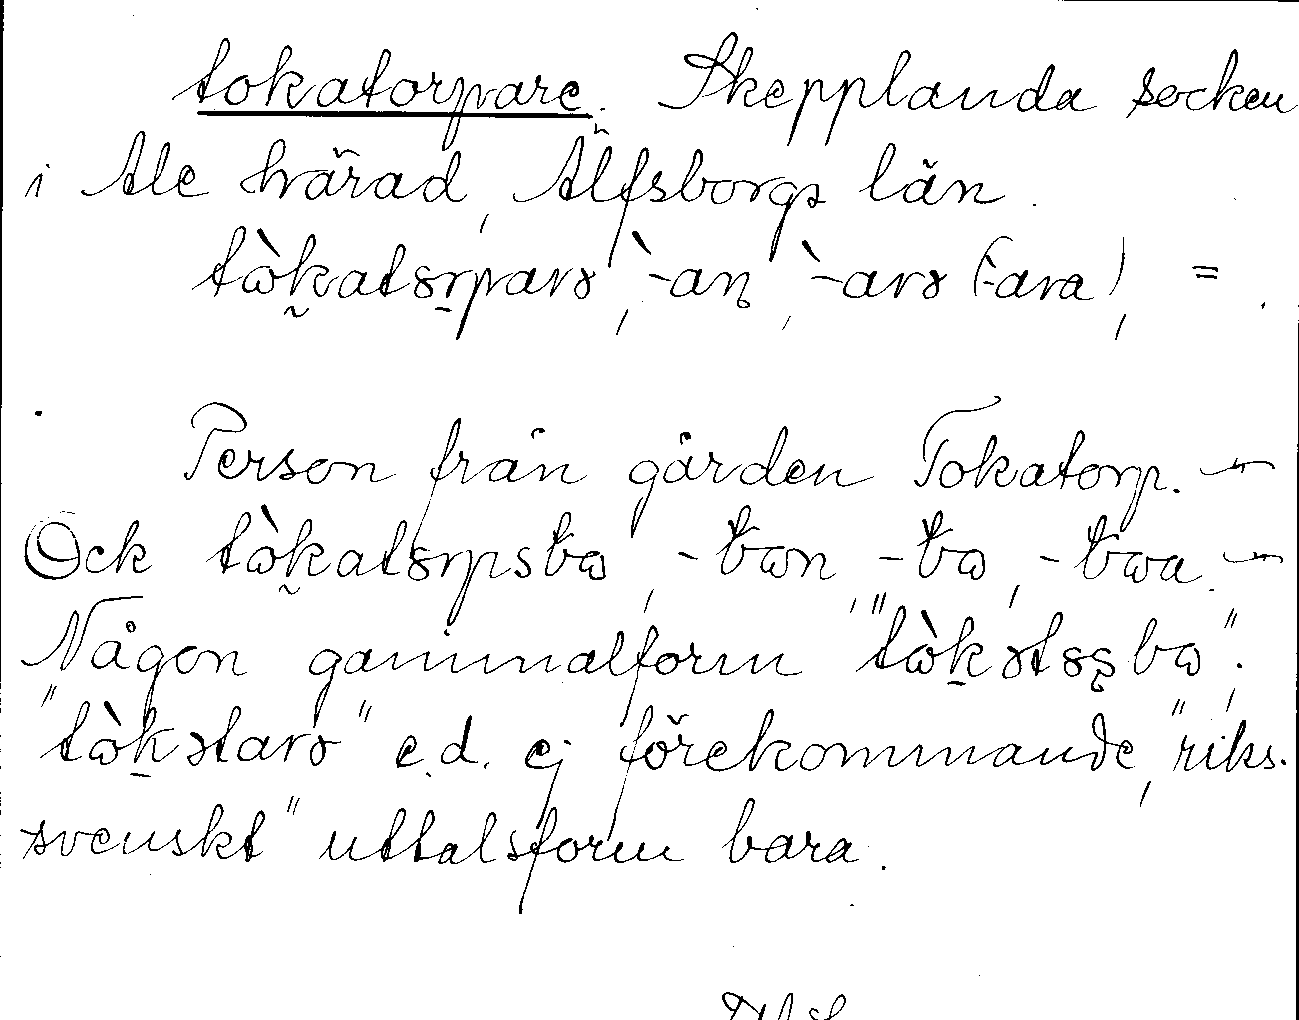 tokatorpare. Skepplanda socken
i Ale härad, Älfsborgs län.
tὼkatorpara, `-an, `-ara (`-ara), =
Person från gården Tokatorp. —
Ock tὼkatorpsbω, -bωn, -bω, -bωa. —
Någon gammalform "tὼkətosbω",
"tὼkstarə" e.d. ej förekommande, "riks-
svenskt" uttalsform bara.